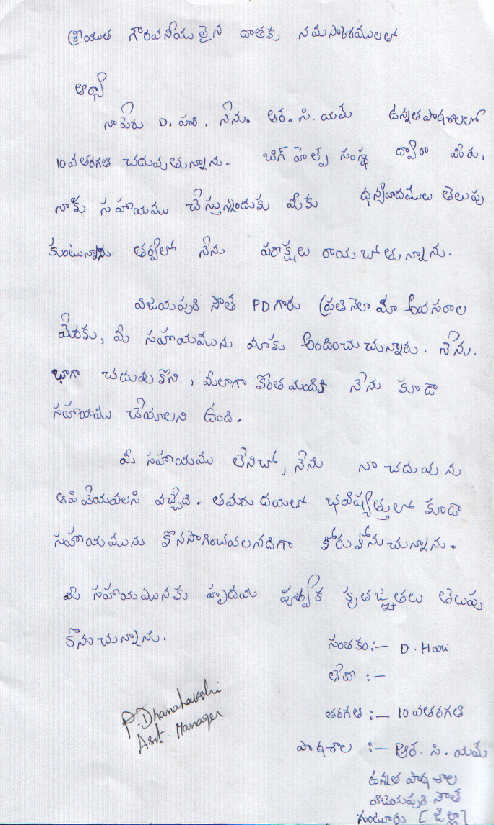 శ్రీయుత గౌరవనీయులైన దాతకు నమస్కారములలో
ఆర్యా
నా పేరు D. హరి. నేను ఆర్. సి. యమ్ ఉన్నతపాఠశాలలో
10వతరగతి చదువుతున్నాను. బిగ్ హెల్ప్ సంస్థ ద్వారా మీరు,
నాకు సహాయము చేస్తున్నందుకు మీకు ధన్యవాదములు తెలుపు
కుంటున్నాను త్వరలో నేను పరీక్షలు రాయబోతున్నాను.
విజయపురి సౌత్ PD గారు ప్రతినెలా మా అవసరాల
మేరకు, మీ సహాయమును మాకు అందించుచున్నారు. నేను.
బాగా చదువుకొని, మీలాగా కొంతమందికి నేను కూడా
సహాయము చేయాలని ఉంది.
మీ సహాయము లేనిచో, నేను నా చదువును
ఆపివేయవలసి వచ్చేది. తమరుదయలో భవిష్యత్తులో కూడా
సహాయమును కొనసాగించవలసినదిగా కోరుకొనుచున్నాను.
మీ సహాయమునకు హృదయ పూర్వక కృతజ్ఞతలు తెలుపు
కొనుచున్నాను.
సంతకం:- D. Hari
పేరు :-
తరగతి :- 10వతరగతి
పాఠశాల :- ఆర్. సి. యమ్
ఉన్నత పాఠశాల
విజయపురి సౌత్
గుంటూరు [జిల్లా]
P. Dhanalakshmi
Asst Manager